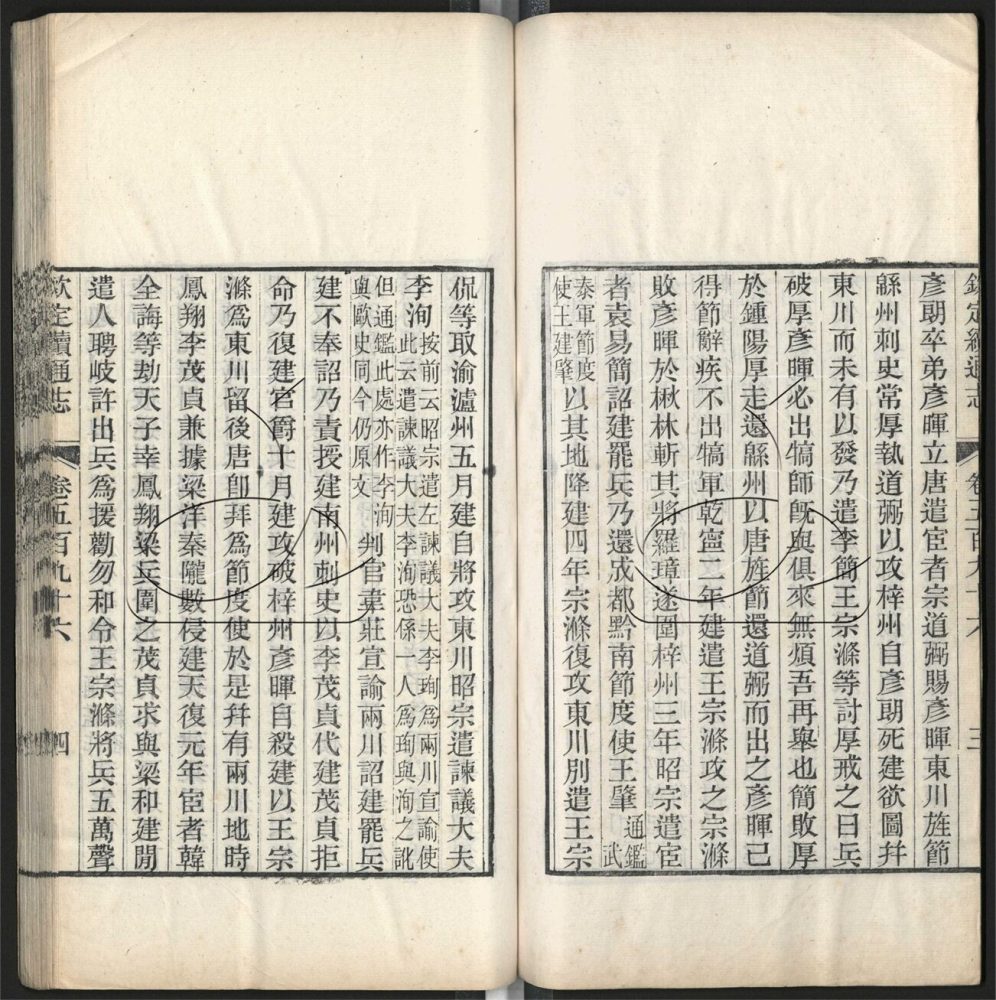 彥朗卒弟彥暉立唐遣宦者宗道弼賜彥暉東川旌節
緜州刺史常厚執道弼以攻梓州自彥朗死建欲圖幷
東川而未有以發乃遣李簡王宗滌等討厚戒之曰兵
破厚彥暉必出犒師旣與俱來無煩吾再舉也簡敗厚
於鍾陽厚走還緜州以唐旌節還道弼而出之彥暉已
得節辭疾不出犒軍乾寧二年建遣王宗滌攻之宗滌
敗彥暉於楸林斬其將羅璋遂圍梓州三年昭宗遣宦
者袁易簡詔建罷兵乃還成都黔南節度使王肇通鑑武
泰軍節度使王建肇以其地降建四年宗滌復攻東川別遣王宗
侃等取渝瀘州五月建自將攻東川昭宗遣諫議大夫
李洵按前云昭宗遣左諫議大夫李珣爲兩川宣諭使此云遣諫議大夫李洵恐係一人爲珣與洵之訛
但通鑑此處亦作李洵與歐史同今仍原文判官韋莊宣諭兩川詔建罷兵
建不奉詔乃責授建南州刺史以李茂貞代建茂貞拒
命乃復建官爵十月建攻破梓州彥暉自殺建以王宗
滌爲東川留後唐卽拜爲節度使於是幷有兩川地時
鳳翔李茂貞兼據梁洋秦隴數侵建天復元年宦者韓
全誨等劫天子幸鳳翔梁兵圍之茂貞求與梁和建聞
遣人聘岐許出兵爲援勸勿和令王宗滌將兵五萬聲
欽定續通志 卷五百九十六 四